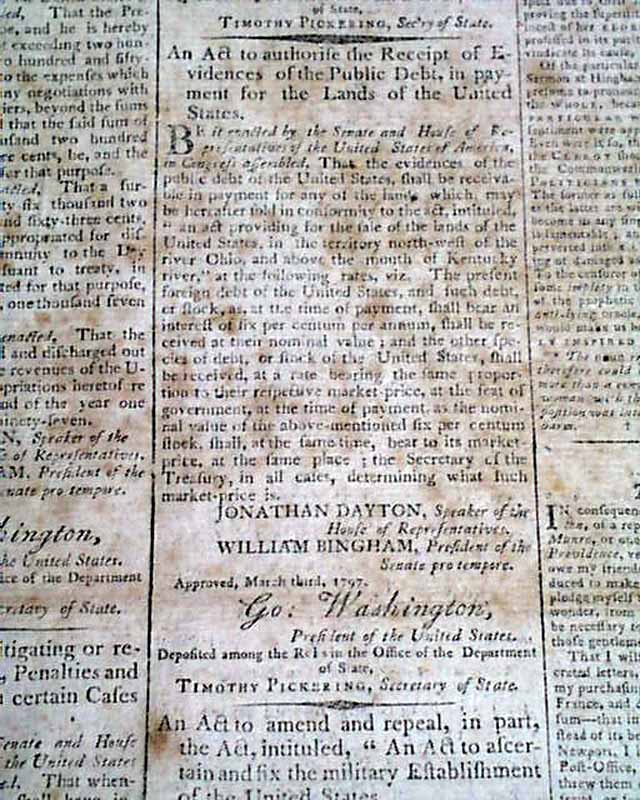 ed, That the Pre-
be, and he is hereby
exceeding two hun-
o hundred and fifty-
to the expenses which
ny negotiations with
iers, beyond the sums
d that the said sum of
usand two hundred
ee cents, be, and the
for that purpose.
acted, That a fur-
ty six thousand two
and sixty-three cents,
appropriated for dis-
annuity to the
suant to treaty, in
ted for that purpose,
, one thousand seven
enacted, That the
and discharged out
e revenues of the U-
opriations heretofore
nd of the year one
inety-seven.
N, Speaker of the
of Representatives.
AM, President of the
Senate pro tempore.
hington,
the United States.
ice of the Department
cretary of State.
itigating or re-
, Penalties and
certain Cases
Senate and House
the United States
ed. That when-
of State,
TIMOTHY PICKERING, Sec'ry of State.
An Act to authorise the Receipt of E-
vidences of the Public Debt, in pay-
ment for the Lands of the United
States.
BE it enacted by the Senate and House of Re-
presentatives of the United States of America,
in Congress assembled, That the evidences of the
public debt of the United States, shall be receiva-
ble in payment for any of the lands which may
be hereafter sold in conformity to the act, intituled,
" an act providing for the sale of the lands of the
United States, in the territory north-west of the
river Ohio, and above the mouth of Kentucky
river," at the following rates, viz. The present
foreign debt of the United States, and such debt,
or stock, as, at the time of payment, shall bear an
interest of six per centum per annum, shall be re-
ceived at their nominal value ; and the other spe-
cies of debt, or stock of the United States, shall
be received, at a rate bearing the same propor-
tion to their respective market-price, at the seat of
government, at the time of payment, as the nomi-
nal value of the above-mentioned six per centum
stock, shall, at the same time, bear to its market-
price, at the same place ; the Secretary of the
Treasury, in all cases, determining what such
market-price is.
JONATHAN DAYTON, Speaker of the
House of Representatives.
WILLIAM BINGHAM, President of the
Senate pro tempore.
Approved, March third, 1797.
Go: Washington,
President of the United States.
Deposited among the Rolls in the Office of the Department
of State,
TIMOTHY PICKERING, Secretary of State.
An Act to amend and repeal, in part,
the Act, intituled, " An Act to ascer-
tain and fix the military Establishment
of the United States.
proving the
of her
professed in its
vindicate its
Of the particular
Sermon at Hingham
presume to pronounce
the WHOLE,
PARTICULAR
sentiment were
Even were it so, that
the CLERGY should
the Commonwealth
POLITICIANS
The former as
as the latter are
become in any
perverted into
ing or damaged
To the censure of
some
of the prophetic
would make us
LY INSPIRED
" The noun
therefore could
more than a
woman with the
position was
harm.
IN consequence
of a
Munro, or
Providence,
owe my friend
duced to make
pledge myself
wonder, from
be necessary to
those gentlemen
That I will
crated letters
my purchasing
France, and
sum—that in
the second
Newport. I
Post-Office,
threw them